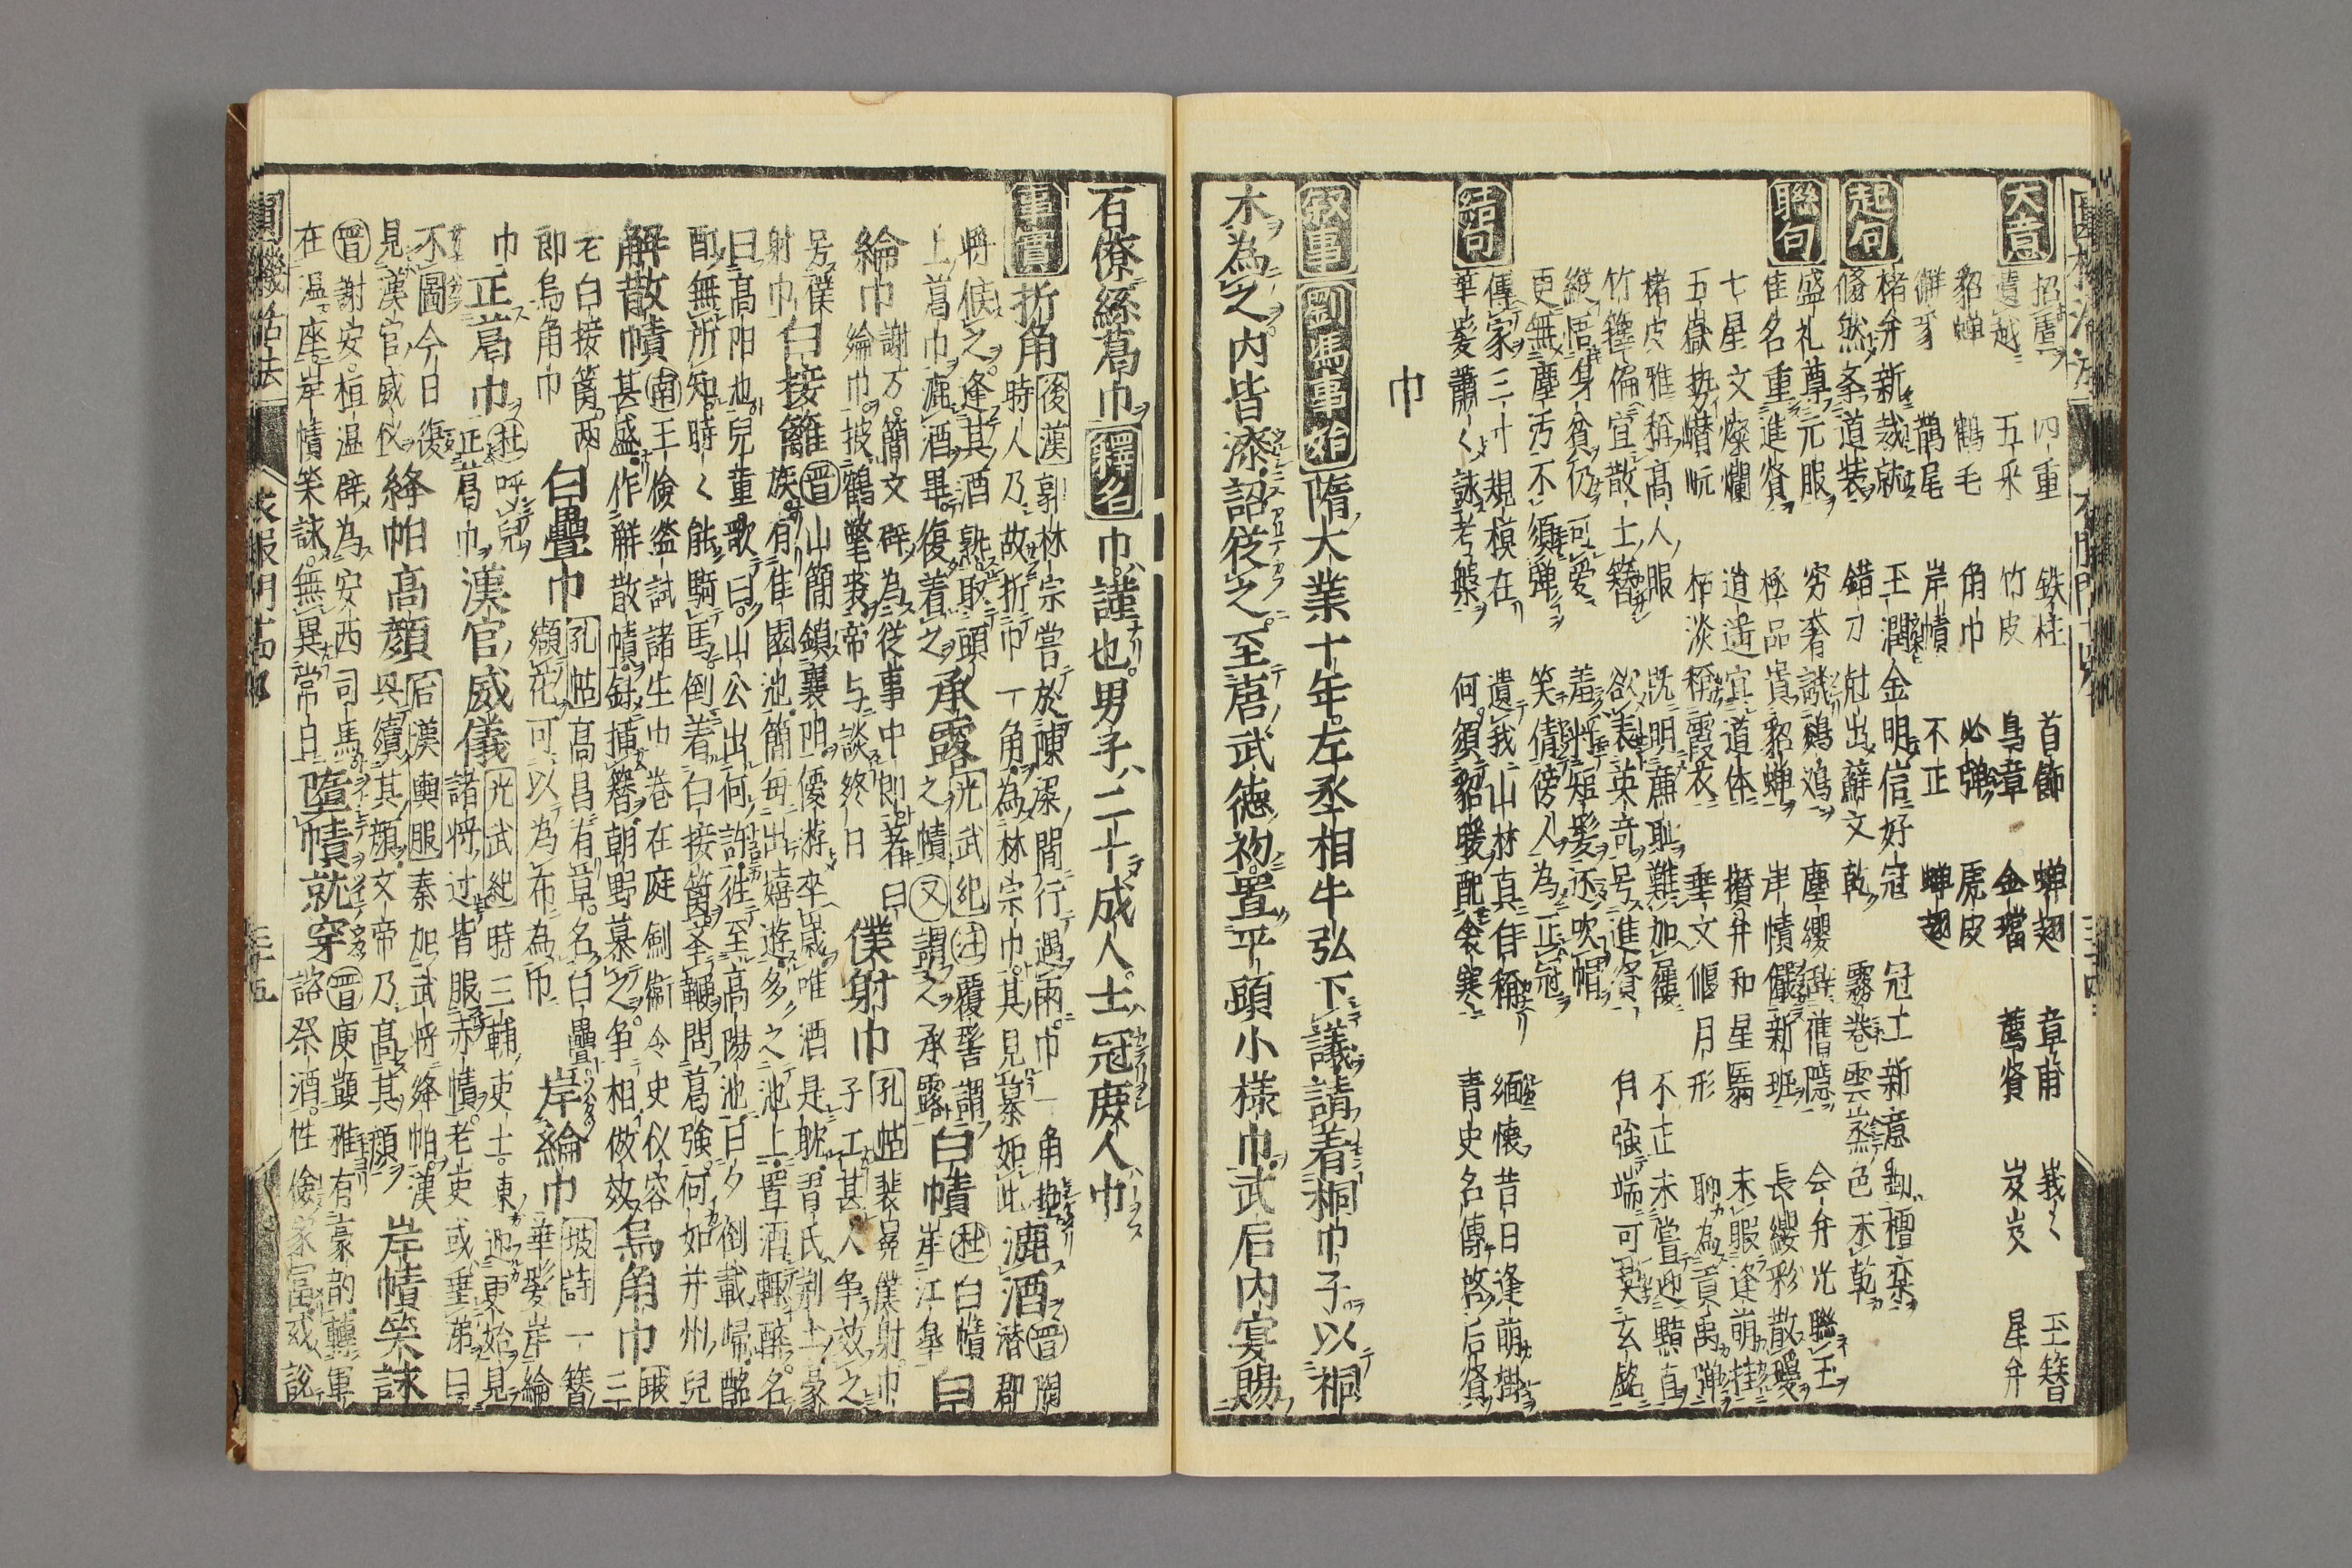 大意
招虞 四重 鉄柱 首飾 蝉翅 章甫 峩〻 玉簪
遺越 五采 竹皮 鳥章 金璫 薦賢 岌岌 星弁
貂蝉 鶴毛 角巾 必弾 虎皮
獬豸 鶡尾 岸幘 不正 蝉翅
起句
楮弁新裁就 玉潤金明信好冠 冠土新意斲檀欒
翛然条道装 錯刀尅出蘚文乾 霧巻雲蒸色不乾
聯句
盛礼尊元服 窮奢誚鷄鴻 塵纓辞旧隠 会弁光聯玉
佳名重進賢 極品貴貂蝉 岸幘儼新班 長纓彩散璦
七星文燦爛 逍遥宜道体 攅弁和星翳 未暇逢萌挂
五嶽執巑岏 枯淡稱霞衣 垂文偃月形 聊為貢禹弾
楮皮雅稱高人服 既明廉恥難加履 不正未嘗迎黯直
竹籜偏宜散士簪 欲表英奇号進賢 自強端可冥玄銘
縦悟身貧仍可愛 羞將短髪还吹帽
更無塵汚不須弾 笑倩傍人為正冠
結句
傳家三寸規模在 遺我山林真自稱 緬懐昔日逢萌掛
華髪蕭〻詠考槃 何須貂暖配衾寒 青史名傳啓后賢
巾
叙事 劉馮事始 隋大業十年左丞相牛弘下議請着桐巾子以桐
木為之内皆漆詔従之至唐武徳初置平頭小様巾武后内宴賜
石僚絲葛巾 釋名 巾謹也男子二十成人士冠庶人巾
事實 折角 後漢 郭林宗嘗於陳梁間行遇雨巾一角墊
時人乃故折巾一角為林宗巾其見慕如此 漉酒 晋 陶潜郡
將候之逢其酒熟取頭
上葛巾漉酒畢復着之 承露 光武紀 注 覆髻謂
之幘 又 謂之承露 白幘 杜 白幘
岸江皐 白
綸巾 謝万簡文辟為従事中即著白
綸巾披鶴氅裘帝与談終日 僕射巾 孔帖 裴冕僕射巾
子工甚人争效之
号僕
射巾 白接籬 晋 山簡鎮襄陽優游卒歳唯酒是耽習氏荊土豪
族有佳園池簡毎出嬉遊多之池上置酒輒醉名
曰高阳池兒童歌曰山公出何許往至高陽池日夕倒載帰酩
酊無所知時〻能騎馬倒着白接籬挙鞭問葛強何如并州兒
解散幘 南 王儉監試諸生巾巻在庭劍衞令史仪容
甚盛作解散幘斜插簪朝野慕之争相倣效 烏角巾 陂
三
老白接籬兩
即烏角巾 白疊巾 孔帖 高昌有草名白疊
纈花可以為布為巾 岸綸巾 坡詩 一簪
華髪岸綸
巾 正葛巾 杜 呼兒
正葛巾 漢官威儀 光武紀 時三輔吏士東迎更始見
諸將过皆服赤幘老吏或垂涕曰
不圖今日復
見漢官威仪 絳帕高顔 后漢輿服 秦加武將絳帕漢
興續其顔文帝乃高其顔 岸幘笑詠
晋 謝安桓温辟為安西司馬
在温座岸幘笑詠無異常白 墮幘就穿 晋 庾顗雅有豪韵轉軍
諮祭酒性儉家富或説